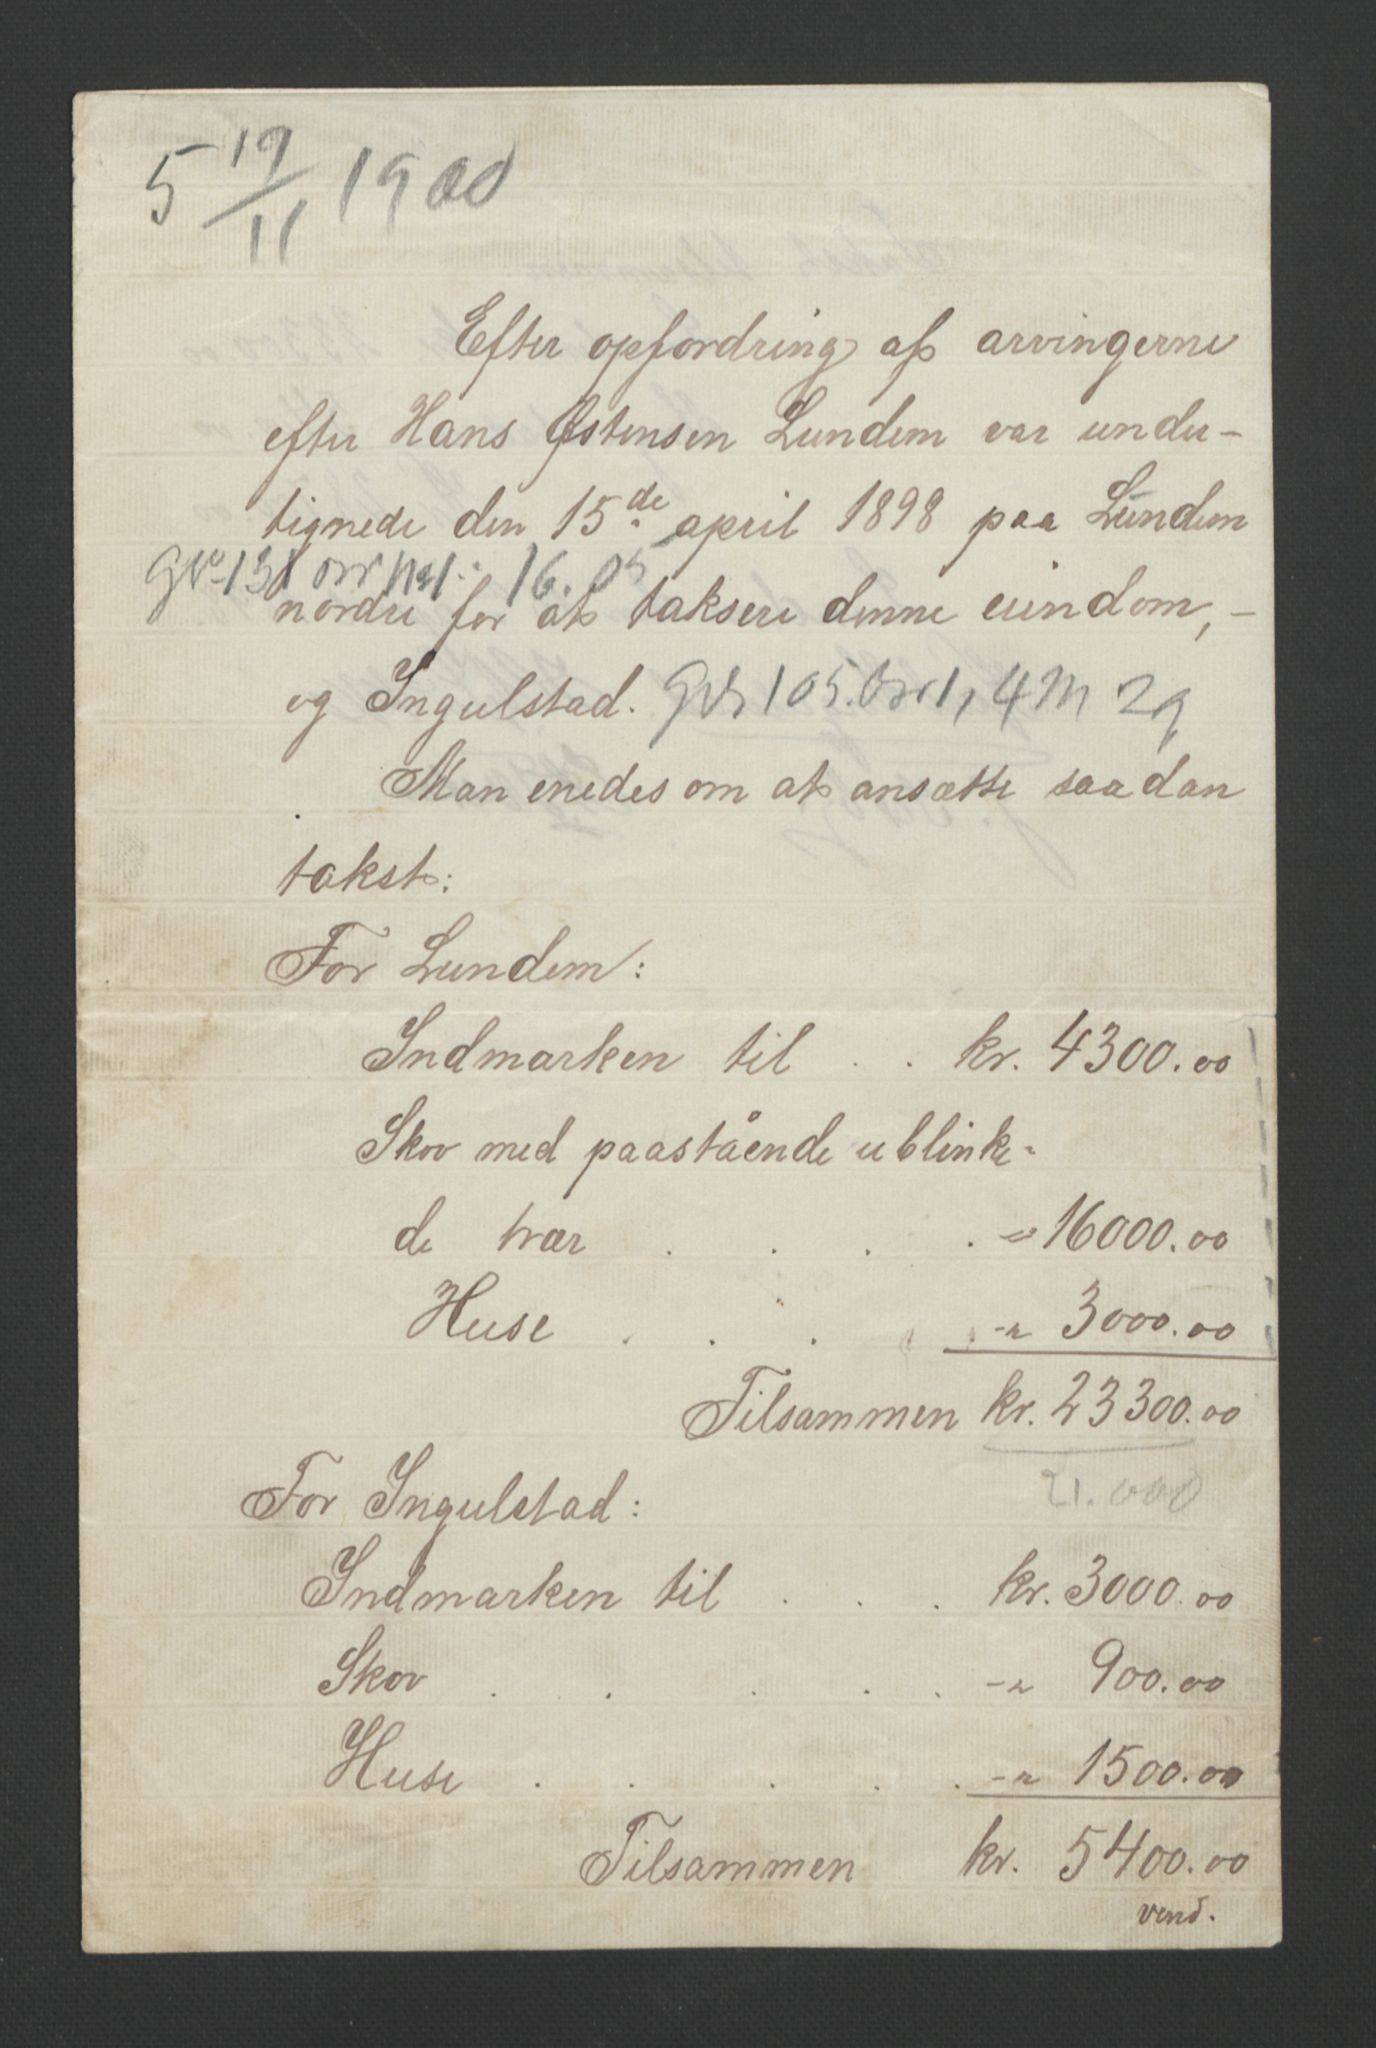 5 19/11 1900
Efter opfordring af arvingerne
efter Hans Østensen Lundem var under-
tignede den 15de april 1898 paa Lundem
131 16.05
nordre for at taksere denne eiendom, -
og Ingulstad. 105. 1, 4 M 29
Man enedes om at ansætte saadan
takst:
For Lundem:
Indmarken til . . kr. 4300.00
Skov med paastående ublinke-
de trær . . . . -"- 16000.00
Huse . . . -"- 3000.00
Tilsammen kr. 23300.00
21.000
For Ingulstad:
Indmarken til . . . kr. 3000.00
Skov . . . . . -"- 900.00
Huse . . . . . -"- 1500.00
Tilsammen kr. 5400.00
vend.